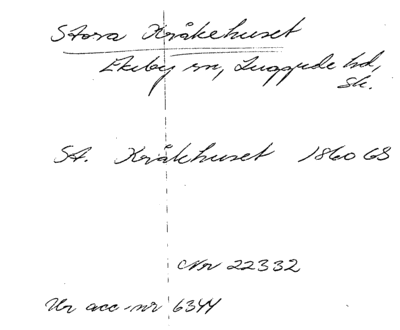 Stora Kråkehuset
Ekeby sn, Luggude hd,
Sk.
St. Kråkhuset 1860 GS
Nr 22332
Ur acc.nr 6344